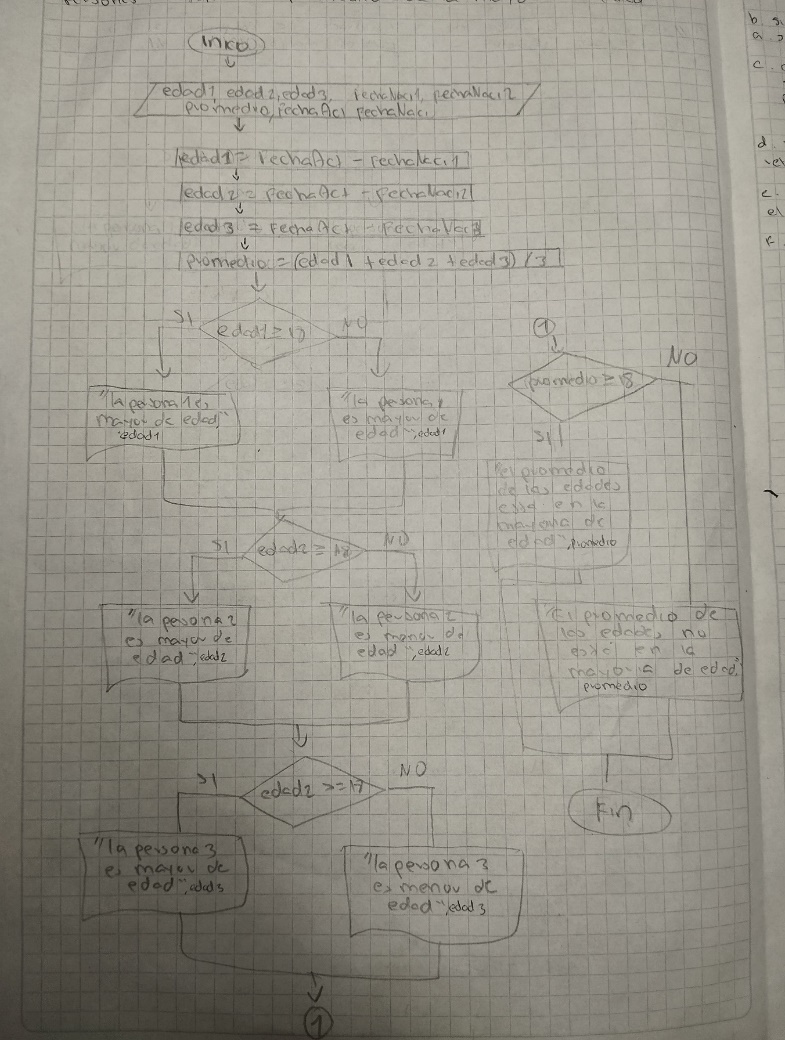 Inicio
edad1, edad2, edad3, fechaNaci1, fechaNaci2
promedio, fechaAct, fechaNaci
edad1 = fechaAct - fechaNaci1
edad2 = fechaAct - fechaNaci2
edad3 = fechaAct - fechaNaci3
promedio = (edad1 + edad2 + edad3) / 3
SI
NO
"la persona 1 es
mayor de edad"
edad1
"la persona 1
es mayor de
edad", edad1
edad2 ≥ 18
SI
NO
"la persona 2
es mayor de
edad", edad2
"la persona 2
es menor de
edad", edad2
edad2 >= 17
SI
NO
"la persona 3
es mayor de
edad", edad3
"la persona 3
es menor de
edad", edad3
1
1
promedio ≥ 18
NO
SI
"el promedio
de las edades
esta en la
mayoria de
edad", promedio
"El promedio de
las edades no
esta en la
mayoria de edad",
promedio
Fin